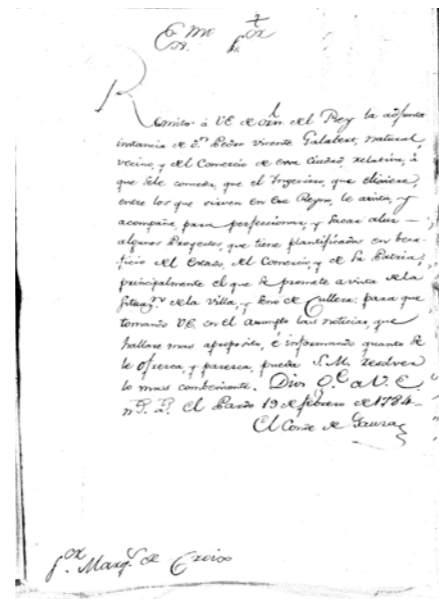 Exmo Sor
Remito á VE de orn del Rey la adjunta
instancia de dn Pedro Vicente Galabert, natural
vecino, y del Comercio de esa Ciudad, relativa, á
que sele conceda, que el Ingeniero, que eligiere,
entre los que sirven en ese Reyno, le asista, y
acompañe, para perfeccionar, y sacar aluz
algunos Proyectos, que tiene plantificados en bene-
ficio del Estado, del Comercio, y de la Patria;
principalmente el que se promete a vista de la
situazn de la Villa, y de Cullera: para que
tomando VE en el asumpto las noticias, que
hallare mas aproposito, é informando quanto se
le ofresca, y paresca, pueda S.M. resolver
lo mas combeniente. Dios ge a V.E.
ms as. El Pardo 19 de febrero de 1784
El Conde de Gausa
Sor Marqs de Croix